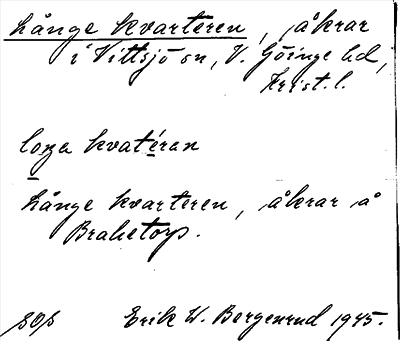 Långe kvarteren, åkrar
i Vittsjö sn, V. Göinge hd,
Krist. l.
loŋa kvatéran
Långe kvarteren, åkrar å
Braketorp.
Erik W. Bergenrud 1945.